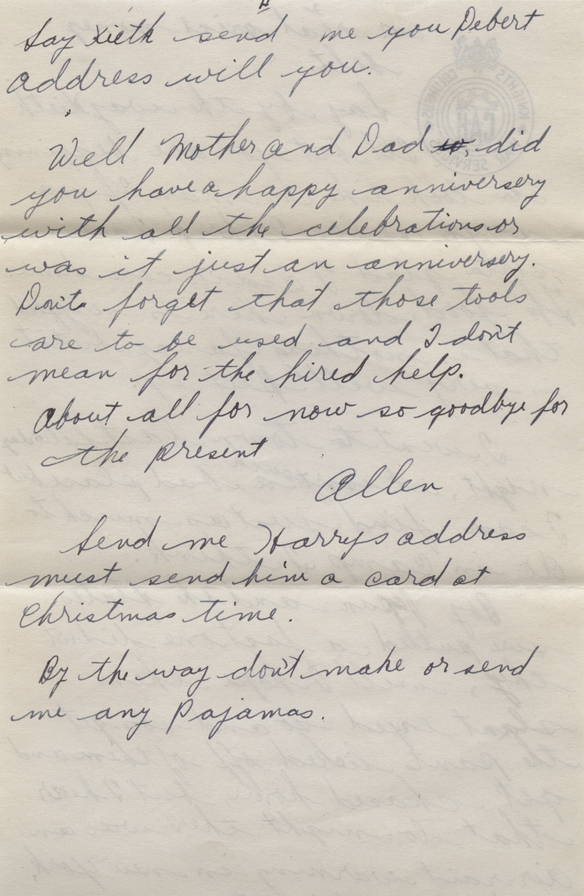 Say Kieth send me you Debert
address will you.
Well Mother and Dad to, did
you have a happy anniversery
with all the celebrations or
was it just an anniversery.
Don't forget that those tools
are to be used and I don't
mean for the hired help.
About all for now so goodbye for
the present
Allen
Send me Harrys address
must send him a card at
Christmas time.
By the way don't make or send
me any Pajamas.